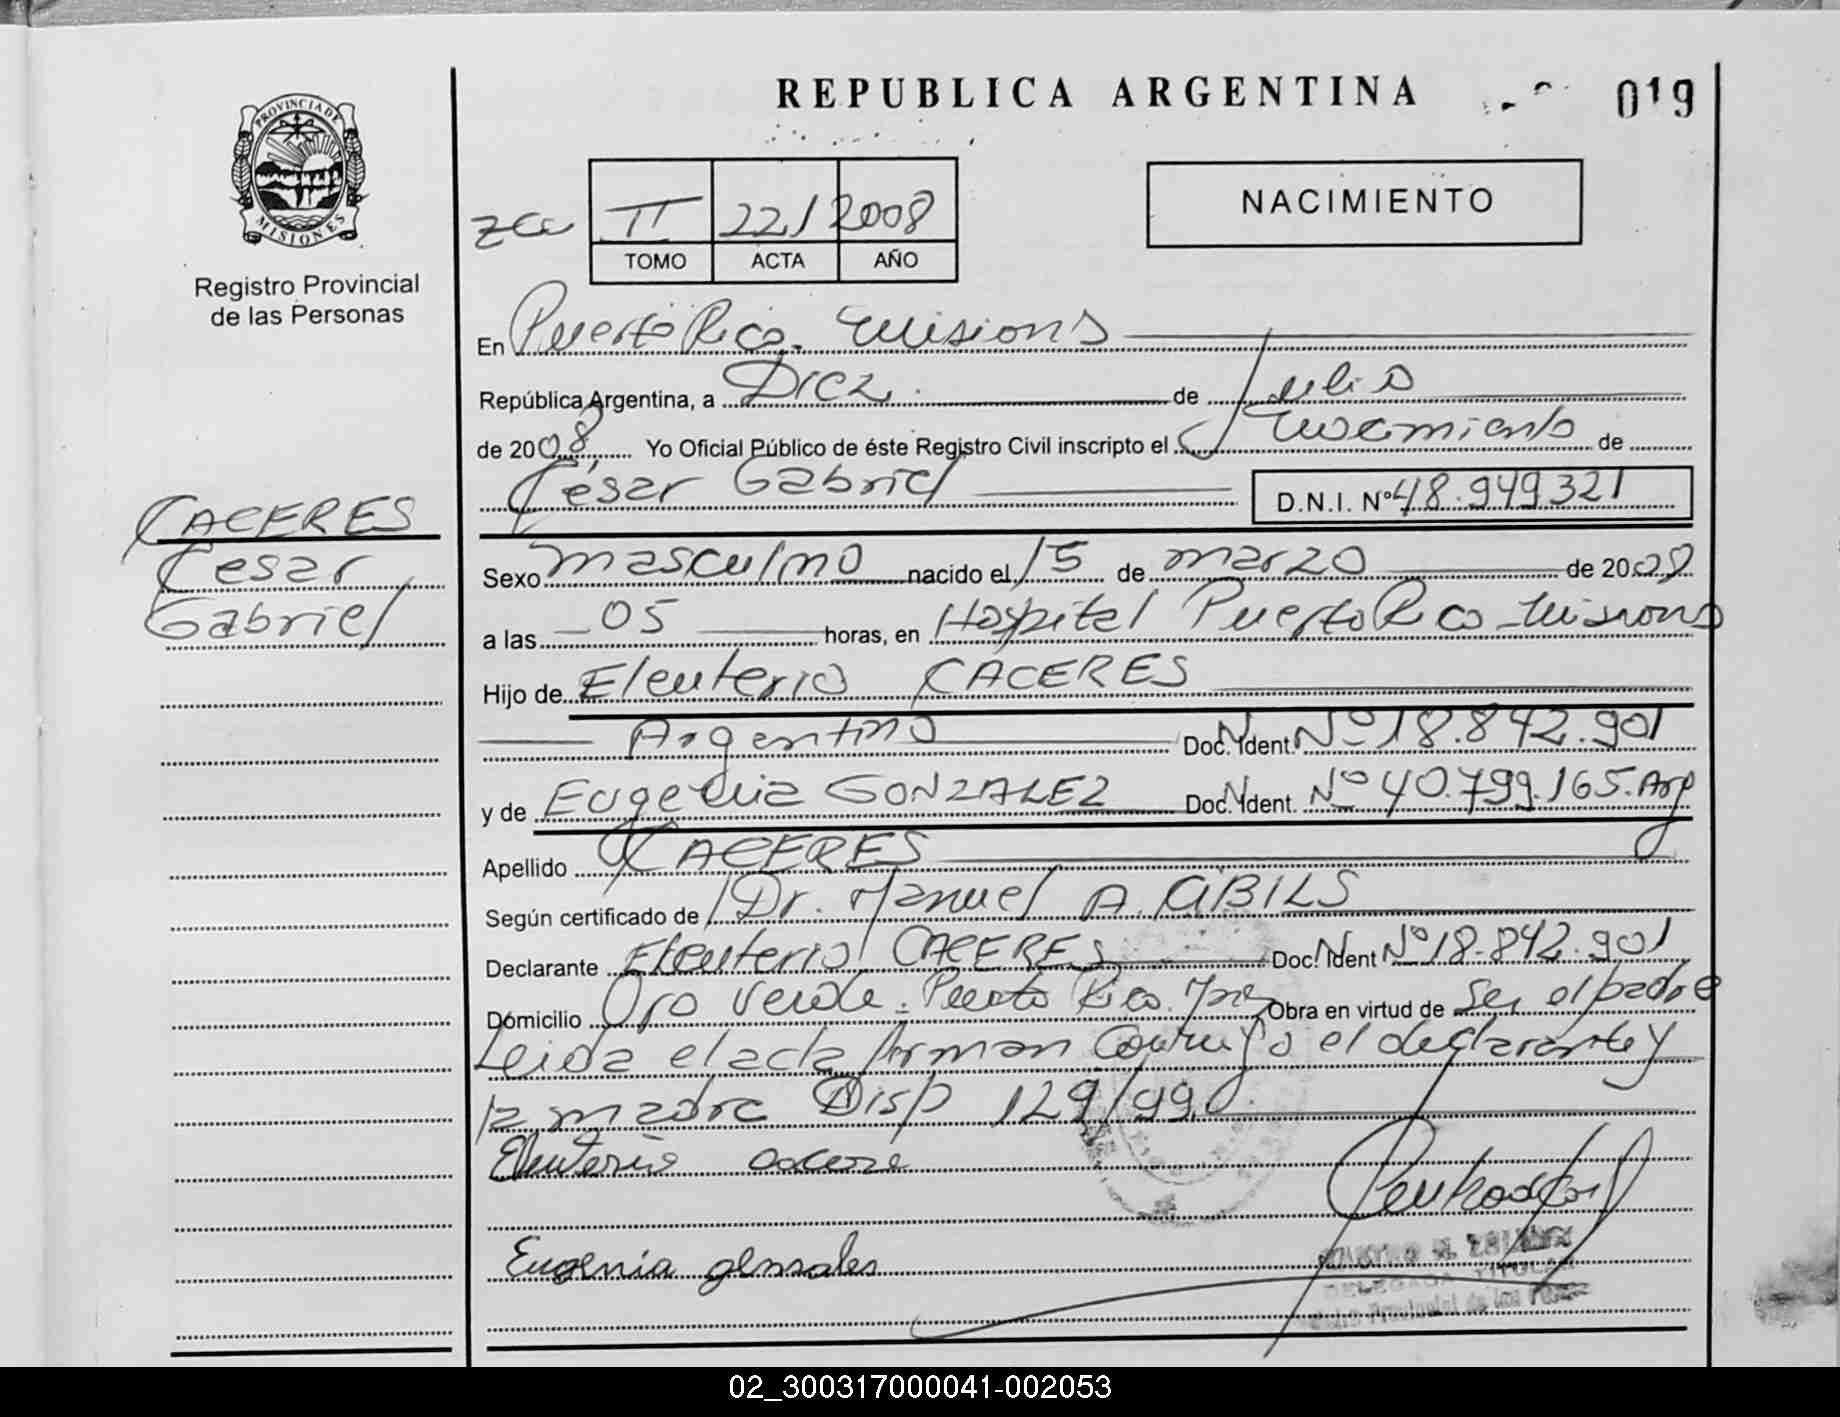 REPUBLICA ARGENTINA
019
PROVINCIA DE
MISIONES
Registro Provincial
de las Personas
II 22/ 2008
TOMO ACTA AÑO
NACIMIENTO
En Puerto Rico. Misiones
República Argentina, a Diez de Julio
de 2008, Yo Oficial Público de éste Registro Civil inscripto el Nacimiento de
César Gabriel D.N.I. Nº 48.949.321
CACERES
Cesar
Gabriel
Sexo masculino nacido el 15 de marzo de 2008
a las 05 horas, en Hospital Puerto Rico Misiones
Hijo de Eleuterio CACERES
Argentino Doc. Ident. Nº 18.842.901
y de Eugenia GONZALEZ Doc. Ident. Nº 40.799.165. Arg
Apellido CACERES
Según certificado de Dr. Manuel A.
Declarante Eleuterio CACERES Doc. Ident Nº 18.842.901
Domicilio Oro Verde. Puerto Rico. Obra en virtud de Ser el padre
Leida el acta firman conmigo el declarante y
la madre Disp 129/99
Eleuterio
Eugenia
DELEGADA TITULAR
Provincial de las
02_300317000041-002053